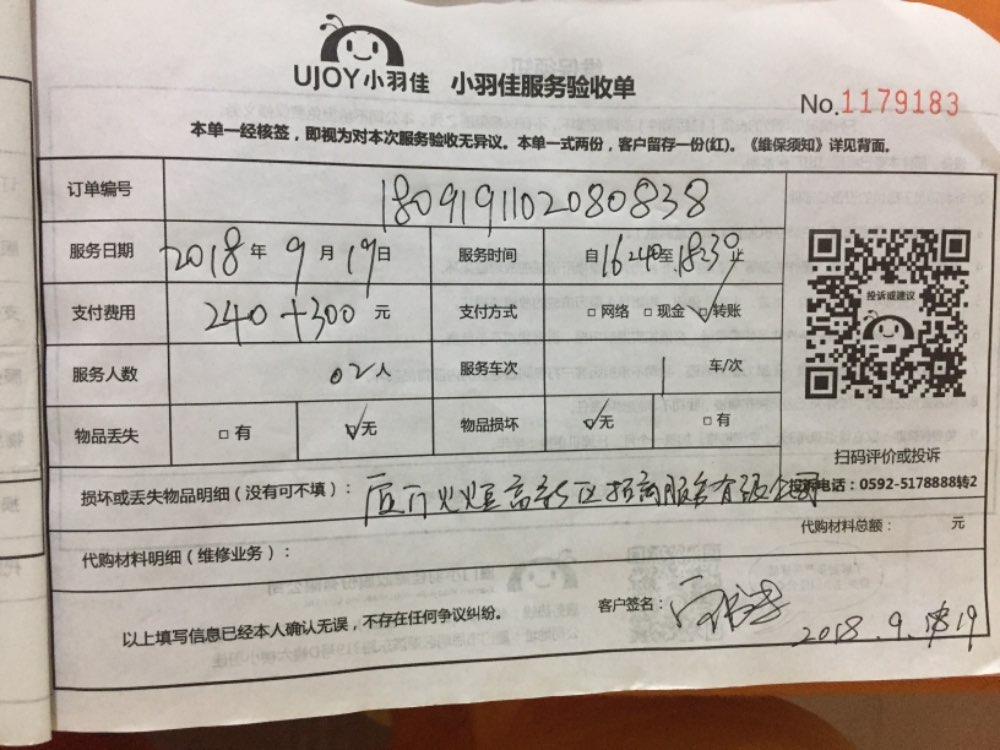 UJOY小羽佳 小羽佳服务验收单
No.1179183
本单一经核签，即视为对本次服务验收无异议。本单一式两份，客户留存一份(红)。《维保须知》详见背面。
订单编号 180919110208083​8
服务日期 2018年9月19日 服务时间 自16:40至18:30止
支付费用 240+300元 支付方式 □网络 □现金 ☑转账
服务人数 02人 服务车次 1 车/次
物品丢失 □有 ☑无 物品损坏 ☑无 □有
投诉或建议
扫码评价或投诉
损坏或丢失物品明细（没有可不填）：厦门火炬高新区招商服务有限公司
投诉电话：0592-5178888转2
代购材料明细（维修业务）：
代购材料总额： 元
以上填写信息已经本人确认无误，不存在任何争议纠纷。
客户签名：
2018.9.19